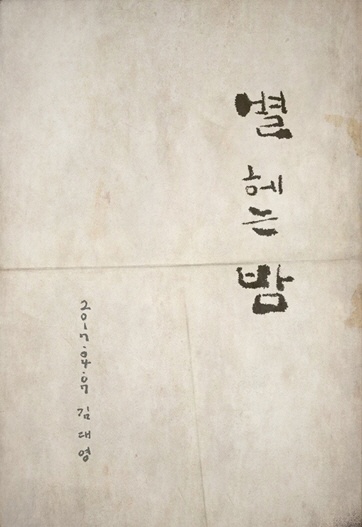 별 헤는 밤
2017.04.07 김대영